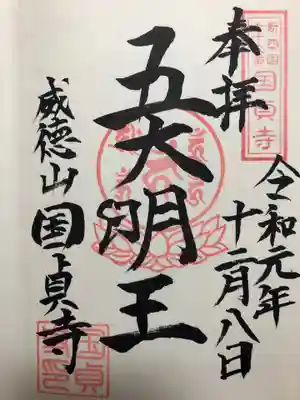 奉拝
令和元年
十二月八日
五大明王
威徳山国貞寺
国貞寺